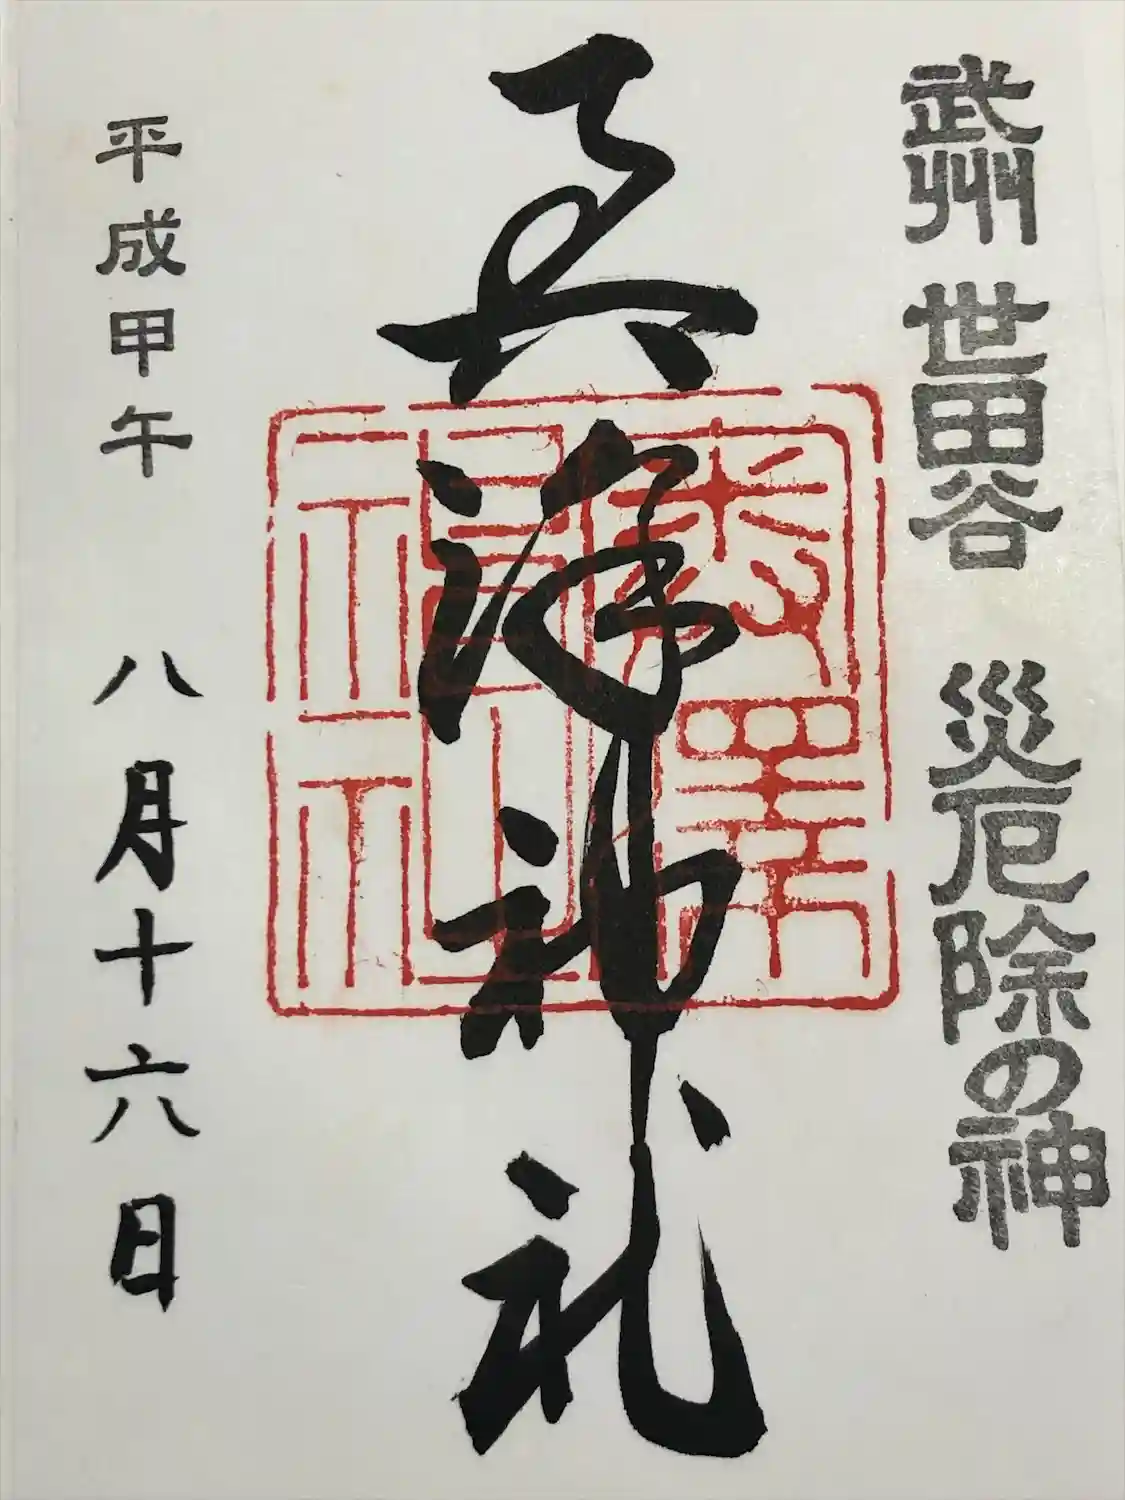 武州 世田谷 災厄除の神
奥澤神社
奥澤
神社
平成甲午 八月十六日